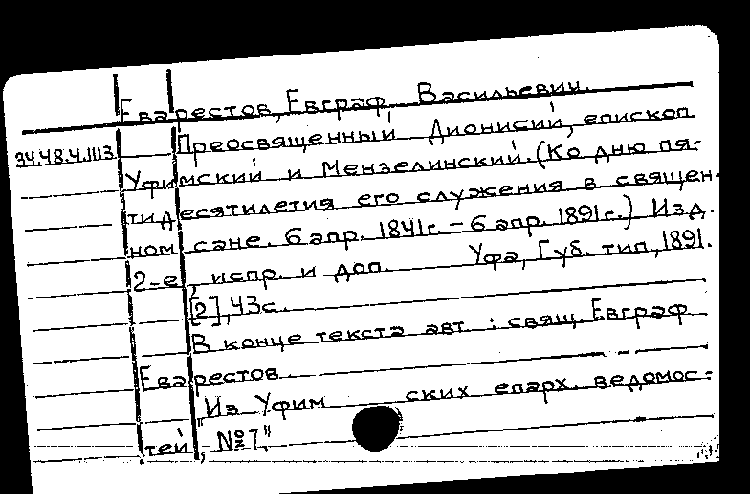 Еварестов, Евграф Васильевич.
34.48.4.1113
Преосвященный Дионисий, епископ
Уфимский и Мензелинский. (Ко дню пя-
тидесятилетия его служения в священ-
ном сане. 6 апр. 1841г. – 6 апр. 1891г.) Изд.
2-е, испр. и доп. Уфа, Губ. тип, 1891.
[2], 43с.
В конце текста авт.: свящ. Евграф
Еварестов.
"Из Уфимских епарх. ведомос-
тей, №7."